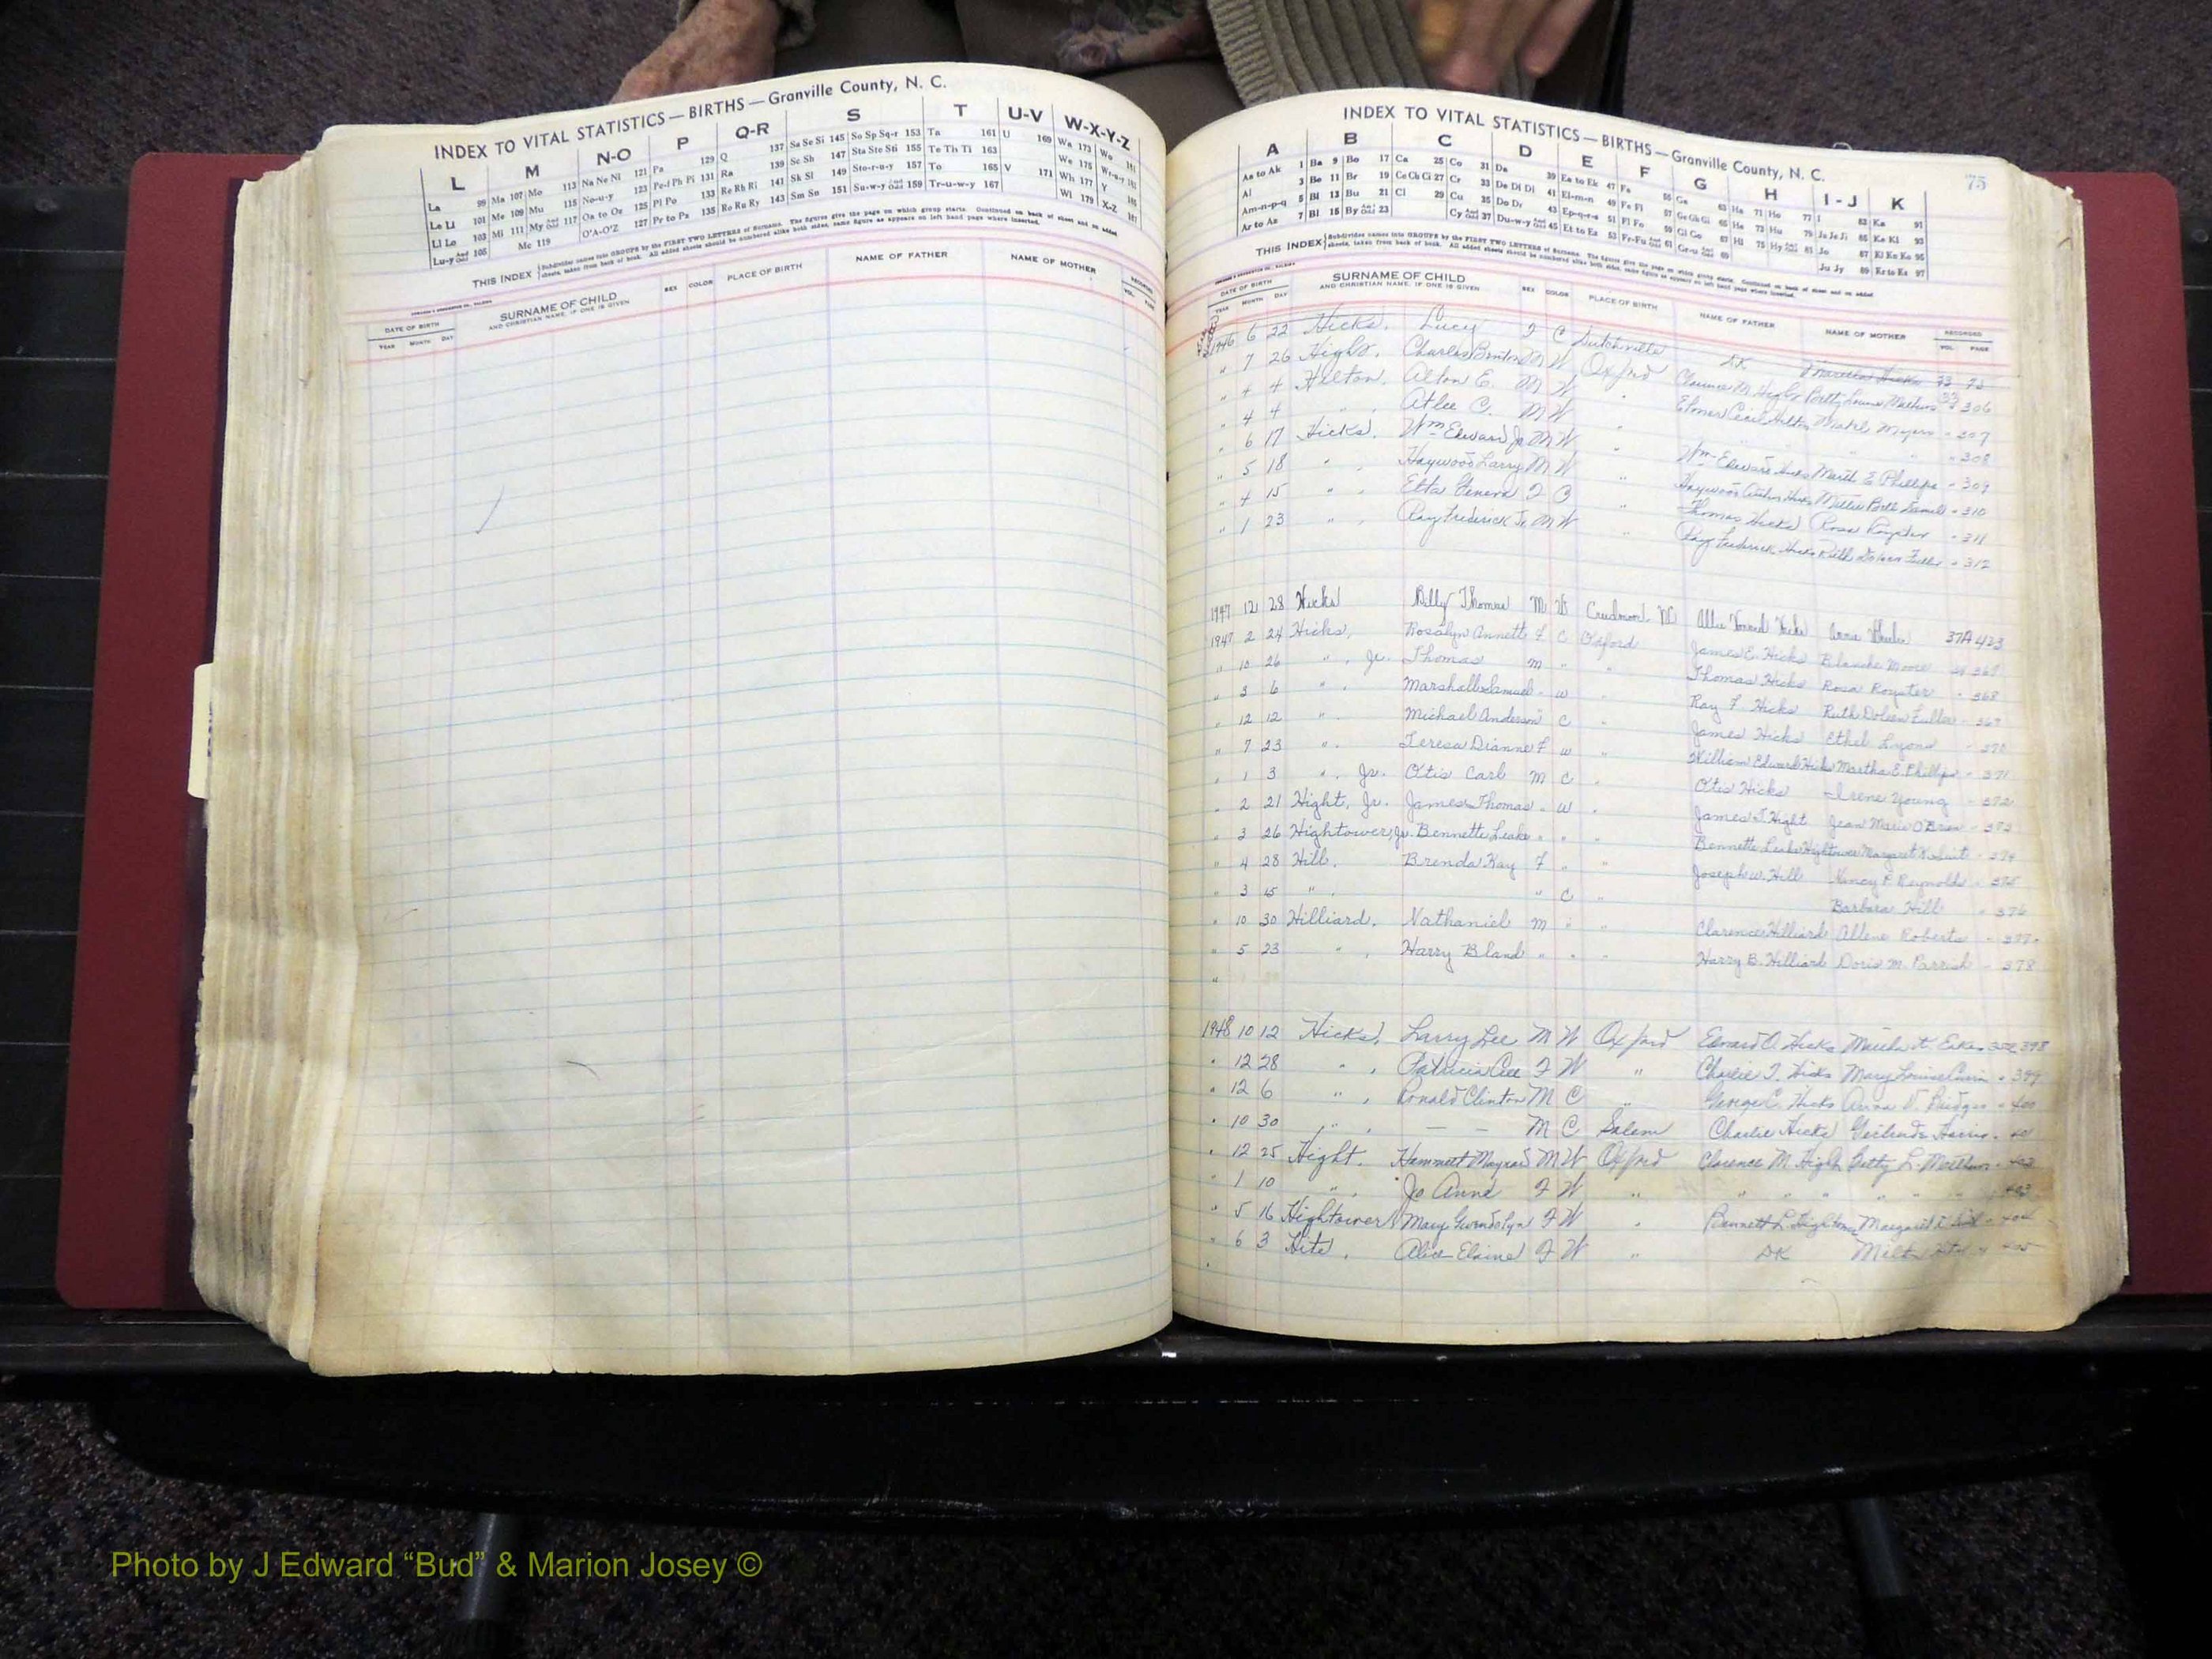 INDEX TO VITAL STATISTICS — BIRTHS — Granville County, N. C.
L M N-O P Q-R S T U-V W-X-Y-Z
La 99 Ma 107 Mo 113 Na Ne Ni 121 Pa 129 Q 137 Sa Se Si 145 So Sp Sq-r 153 Ta 161 U 169 Wa 173 Wo
Le Li 101 Me 109 Mu 115 No-u-y 123 Pe-f Ph Pi 131 Ra 139 Sc Sh 147 Sta Ste Sti 155 Te Th Ti 163 We 175
Ll Lo 103 Mi 111 My 117 Oa to Oz 125 Pl Po 133 Re Rh Ri 141 Sk Sl 149 Sto-r-u-y 157 To 165 V 171 Wh 177 Y
Lu-y 105 Mc 119 O'A-O'Z 127 Pr to Ps 135 Ro Ru Ry 143 Sm Sn 151 Su-w-y 159 Tr-u-w-y 167 Wi 179 X-Z
THIS INDEX Subdivides names into GROUPS by the FIRST TWO LETTERS of Surname. The figures give the page on which group starts. Continued on back of sheet and on added
sheets, taken from back of book. All added sheets should be numbered alike both sides, same figure as appears on left hand page where inserted.
DATE OF BIRTH SURNAME OF CHILD SEX COLOR PLACE OF BIRTH NAME OF FATHER NAME OF MOTHER RECORDED
YEAR MONTH DAY AND CHRISTIAN NAME, IF ONE IS GIVEN VOL. PAGE
INDEX TO VITAL STATISTICS — BIRTHS — Granville County, N. C.
75
A B C D E F G H I-J K
Aa to Ak 1 Ba 9 Bo 17 Ca 25 Co 31 Da 39 Ea to Ek 47 Fa 55 Ga 63 Ha 71 Ho 77 I 83 Ka 91
Al 3 Be 11 Br 19 Ce Ch Ci 27 Cr 33 De Di Dl 41 El-m-n 49 Fe Fi 57 Ge Gh Gi 65 He 73 Hu 79 Ja Je Ji 85 Ke Kl 93
Am-n-p-q 5 Bi 13 Bu 21 Cl 29 Cu 35 Do Dr 43 Ep-q-r-s 51 Fl Fo 59 Gl Go 67 Hi 75 Hy 81 Jo 87 Kl Kn Ko 95
Ar to Az 7 Bl 15 By 23 Cy 37 Du-w-y 45 Et to Ez 53 Fr-Fu 61 Gr-u 69 Ju Jy 89 Kr to Kz 97
THIS INDEX Subdivides names into GROUPS by the FIRST TWO LETTERS of Surname. The figures give the page on which group starts. Continued on back of sheet and on added
sheets, taken from back of book. All added sheets should be numbered alike both sides, same figure as appears on left hand page where inserted.
DATE OF BIRTH SURNAME OF CHILD SEX COLOR PLACE OF BIRTH NAME OF FATHER NAME OF MOTHER RECORDED
YEAR MONTH DAY AND CHRISTIAN NAME, IF ONE IS GIVEN VOL. PAGE
1946 6 22 Hicks, Lucy F C Dutchville DK Hicks 33
" 7 26 Hight, Charles Benton M W Oxford Clarence M. Hight Betty Louise 33 306
" 4 4 Hilton, Alton E. M W " Elmer Cecil Hilton Mabel Myers " 307
" 4 4 " , Atlee C. M W " " " " 308
" 6 17 Hicks, Wm Edward Jr M W " Wm Edward Hicks Marth E Phillips " 309
" 5 18 " , Haywood Larry M W " Haywood Hicks Mattie Bell Daniel " 310
" 4 15 " , Etta Geneva F C " Thomas Hicks Rosa Royster " 311
" 1 23 " , Ray Frederick Jr. M W " Ray Frederick Hicks Ruth Fuller " 312
1947 12 28 Hicks Billy Thomas M W Hicks Annie 37A 433
1947 2 24 Hicks, Rosalyn Annette F C Oxford James E. Hicks Blanche Moore 367
" 10 26 " , Jr. Thomas m " " Thomas Hicks Rosa Royster " 368
" 3 6 " , Marshall Samuel " w " Ray F. Hicks Ruth Doleen Fuller " 369
" 12 12 " , Michael Anderson " C " James Hicks Ethel Lyons " 370
" 7 23 " , Teresa Dianne F w " William Edward Hicks Martha E. Phillips " 371
" 1 3 " , Jr. Otis Carl m C " Otis Hicks Irene Young " 372
" 2 21 Hight, Jr. James Thomas " w " James T. Hight Jean Marie O'Brien " 373
" 3 26 Hightower, Jr. Bennette Leake " " " Bennette Leake Hightower Margaret " 374
" 4 28 Hill, Brenda Kay F " " Joseph W. Hill Nancy P. Reynolds " 375
" 3 15 " , " C " Barbara Hill " 376
" 10 30 Hilliard, Nathaniel m " " Clarence Hilliard Allene Roberts " 377
" 5 23 " , Harry Bland " " " Harry B. Hilliard Doris M. Parrish " 378
"
1948 10 12 Hicks, Larry Lee M W Oxford Edward A. Hicks 398
" 12 28 " , Patricia F W " Charlie T. Hicks Mary Louise " 399
" 12 6 " , Ronald Clinton M C " George C. Hicks Anna Bridges " 400
" 10 30 " , — — M C Salem Charlie Hicks Gertrude Harris " 401
" 12 25 Hight, Hammett M W Oxford Clarence M. Hight Betty L. " 402
" 1 10 " , Jo Anne F W " " " " " " " 403
" 5 16 Hightower, Mary Gwendolyn F W " Bennett L. Hightower Margaret " 404
" 6 3 Hite, Alice Elaine F W " DK Hite " 405
Photo by J Edward “Bud” & Marion Josey ©